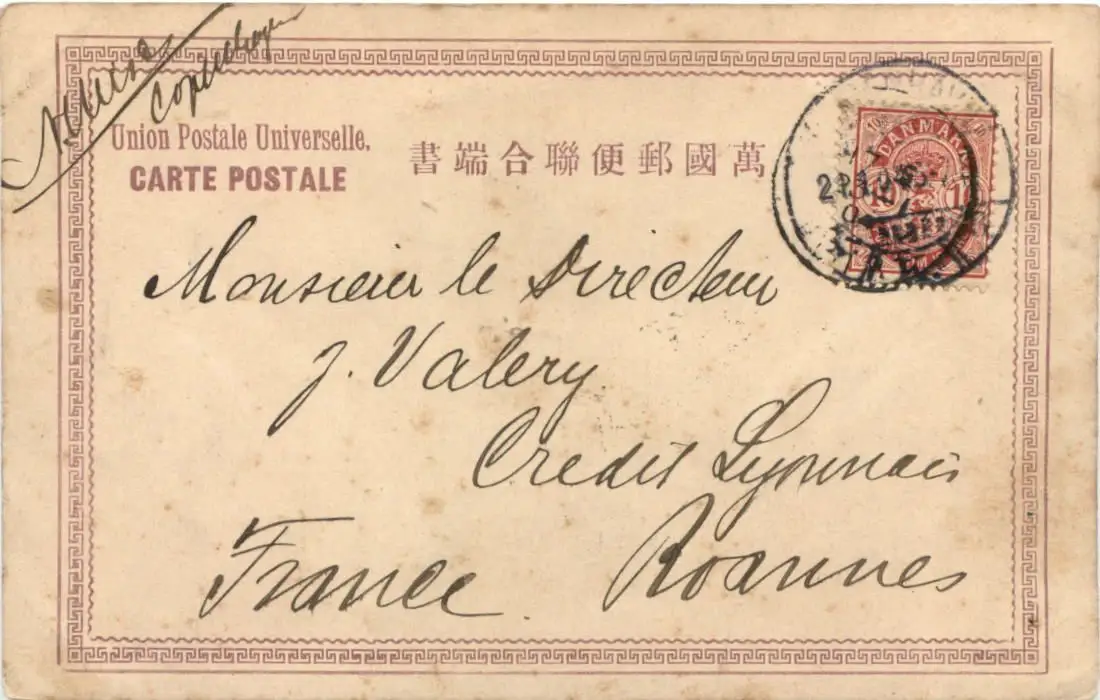 Copenhagen
Union Postale Universelle.
CARTE POSTALE
書端合聯便郵國萬
DANMARK
10
Monsieur le Directeur
J. Valery
Credit Lyonnais
Roannes
France